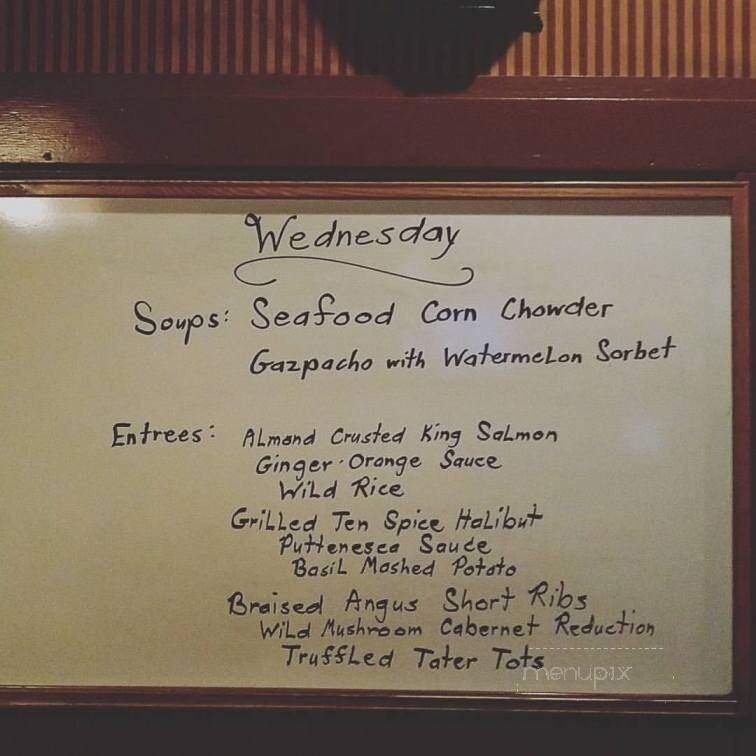 Wednesday
Soups: Seafood Corn Chowder
Gazpacho with Watermelon Sorbet
Entrees: Almond Crusted King Salmon
Ginger-Orange Sauce
Wild Rice
Grilled Ten Spice Halibut
Puttenesca Sauce
Basil Mashed Potato
Braised Angus Short Ribs
Wild Mushroom Cabernet Reduction
Truffled Tater Tots
menupix